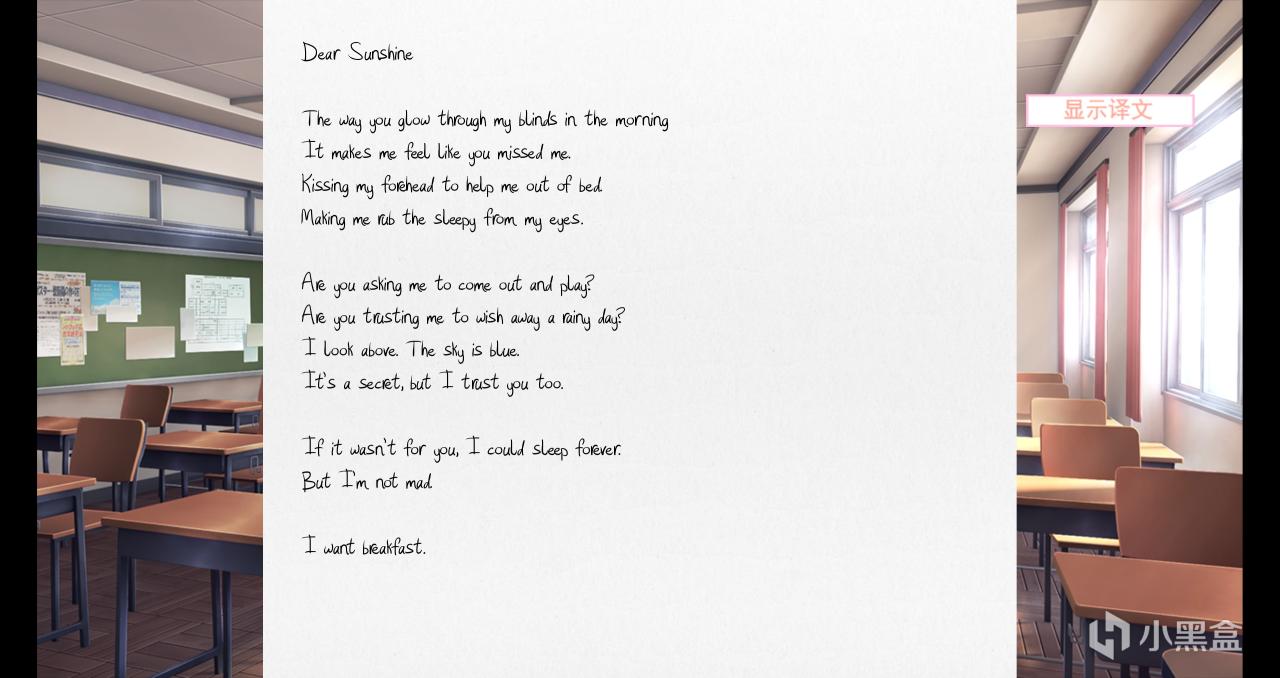 Dear Sunshine
The way you glow through my blinds in the morning
It makes me feel like you missed me.
Kissing my forehead to help me out of bed.
Making me rub the sleepy from my eyes.
Are you asking me to come out and play?
Are you trusting me to wish away a rainy day?
I look above. The sky is blue.
It's a secret, but I trust you too.
If it wasn't for you, I could sleep forever.
But I'm not mad.
I want breakfast.
显示译文
小黑盒